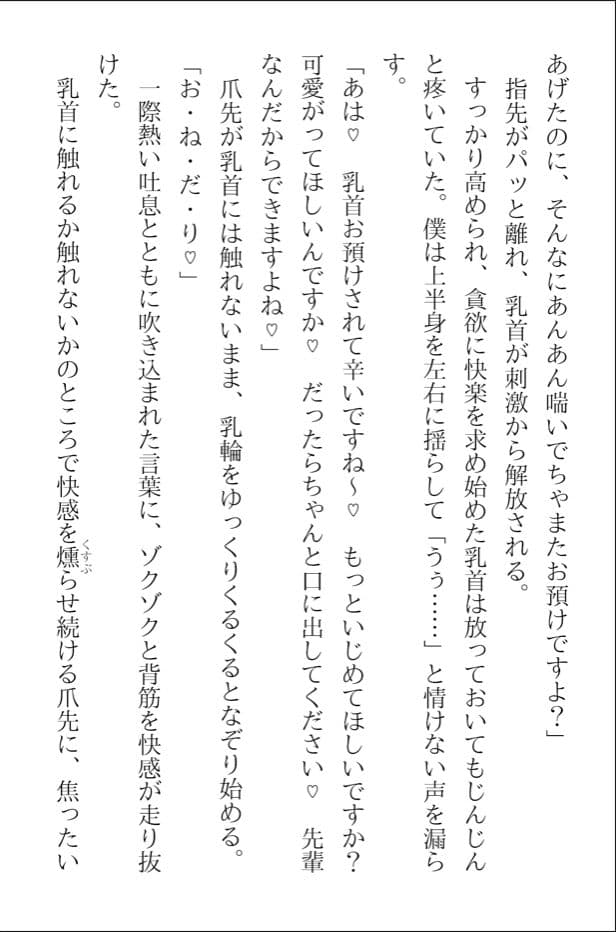 あげたのに、そんなにあんあん喘いでちゃまたお預けですよ？」
指先がパッと離れ、乳首が刺激から解放される。
すっかり高められ、貪欲に快楽を求め始めた乳首は放っておいてもじんじん
と疼いていた。僕は上半身を左右に揺らして「うぅ……」と情けない声を漏ら
す。
「あは♡　乳首お預けされて辛いですね～♡　もっといじめてほしいですか？
可愛がってほしいんですか♡　だったらちゃんと口に出してください♡　先輩
なんだからできますよね♡」
爪先が乳首には触れないまま、乳輪をゆっくりくるくるとなぞり始める。
「お・ね・だ・り♡」
一際熱い吐息とともに吹き込まれた言葉に、ゾクゾクと背筋を快感が走り抜
けた。
乳首に触れるか触れないかのところで快感を燻らせ続ける爪先に、焦ったい
くすぶ